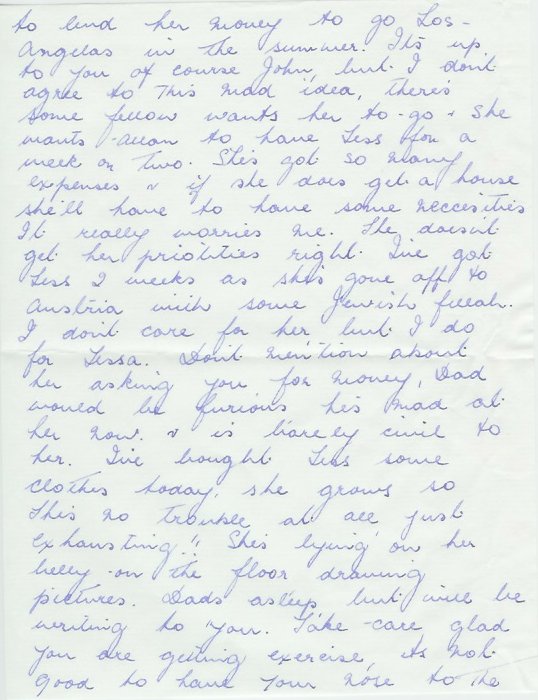 to lend her money to go Los-
Angelas in the summer. It's up
to you of course John, but I dont
agree to this mad idea, there's
some fellow wants her to-go & she
wants Allan to have Tess for a
week or two. She's got so many
expenses & if she does get a house
she'll have to have some neccesities
It really worries me. She doesn't
get her prioities right. I've got
Tess 2 weeks as she's gone off to
Austria with some Jewish fellah.
I don't care for her but I do
for Tessa. Don't mention about
her asking you for money, Dad
would be furious he's mad at
her now. & is barely civil to
her. I've bought Tess some
clothes today, she grows so
She's no trouble at all just
exhausting!! She's lying on her
belly on the floor drawing
pictures. Dads asleep but will be
writing to you. Take care glad
you are getting exercise, its not
good to have your nose to the